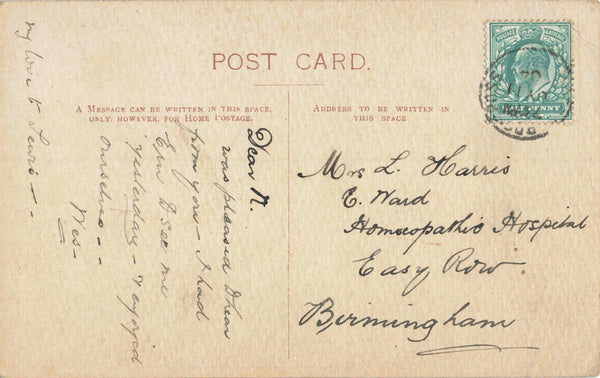 POST CARD.
A MESSAGE CAN BE WRITTEN IN THIS SPACE,
ONLY, HOWEVER, FOR HOME POSTAGE.
ADDRESS TO BE WRITTEN IN
THIS SPACE
POSTAGE REVENUE
HALFPENNY
Dear N.
was pleased
from you - I had
see me
Yesterday - & enjoyed
ourselves - -
my love to Lewis - -
Mrs L. Harris
E. Ward
Homœopathic Hospital
Easy Row.
Birmingham